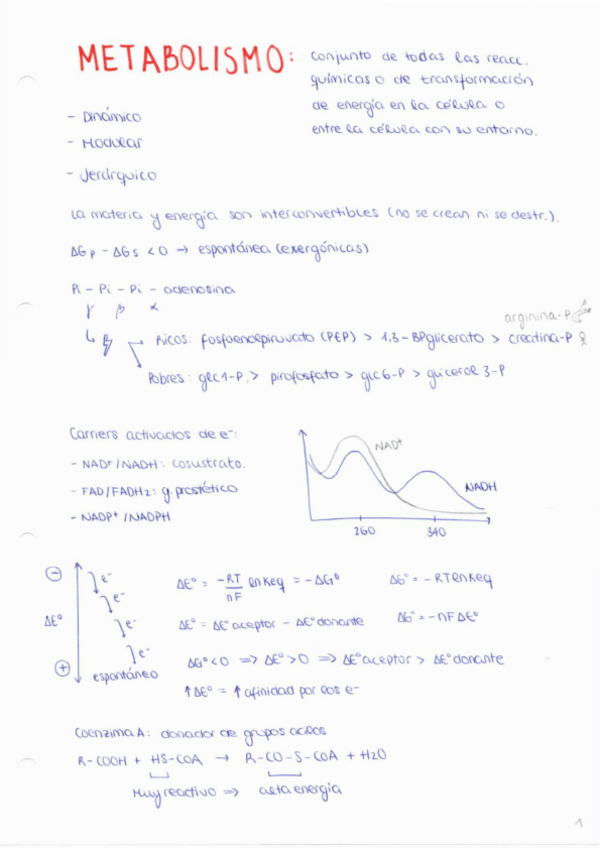 METABOLISMO: conjunto de todas las reacc.
químicas o de transformación
de energía en la célula o
entre la célula con su entorno.
- Dinámico
- Modular
- Jerárquico
La materia y energía son interconvertibles (no se crean ni se destr.).
ΔGp - ΔGs < 0 → espontánea (exergónicas)
Pi - Pi - Pi - adenosina
γ β α
arginina-P
Ricos: fosfoenolpiruvato (PEP) > 1,3-BPglicerato > creatina-P
Pobres: glc1-P, > pirofosfato > glc6-P > glicerol 3-P
Carriers activados de e⁻:
- NAD⁺/NADH: cosustrato.
- FAD/FADH2: g. prostético
- NADP⁺/NADPH
NAD⁺
NADH
260 340
⊖
e⁻
e⁻
e⁻
e⁻
ΔE°
⊕
espontáneo
ΔE° = -RT/nF ln Keq = -ΔG° ΔG° = -RT ln Keq
ΔE° = ΔE° aceptor - ΔE° donante ΔG° = -nFΔE°
ΔG° < 0 ⇒ ΔE° > 0 ⇒ ΔE° aceptor > ΔE° donante
↑ΔE° = ↑afinidad por los e⁻
Coenzima A: donador de grupos acilos
R-COOH + HS-COA → R-CO-S-COA + H2O
Muy reactivo ⇒ alta energía
1